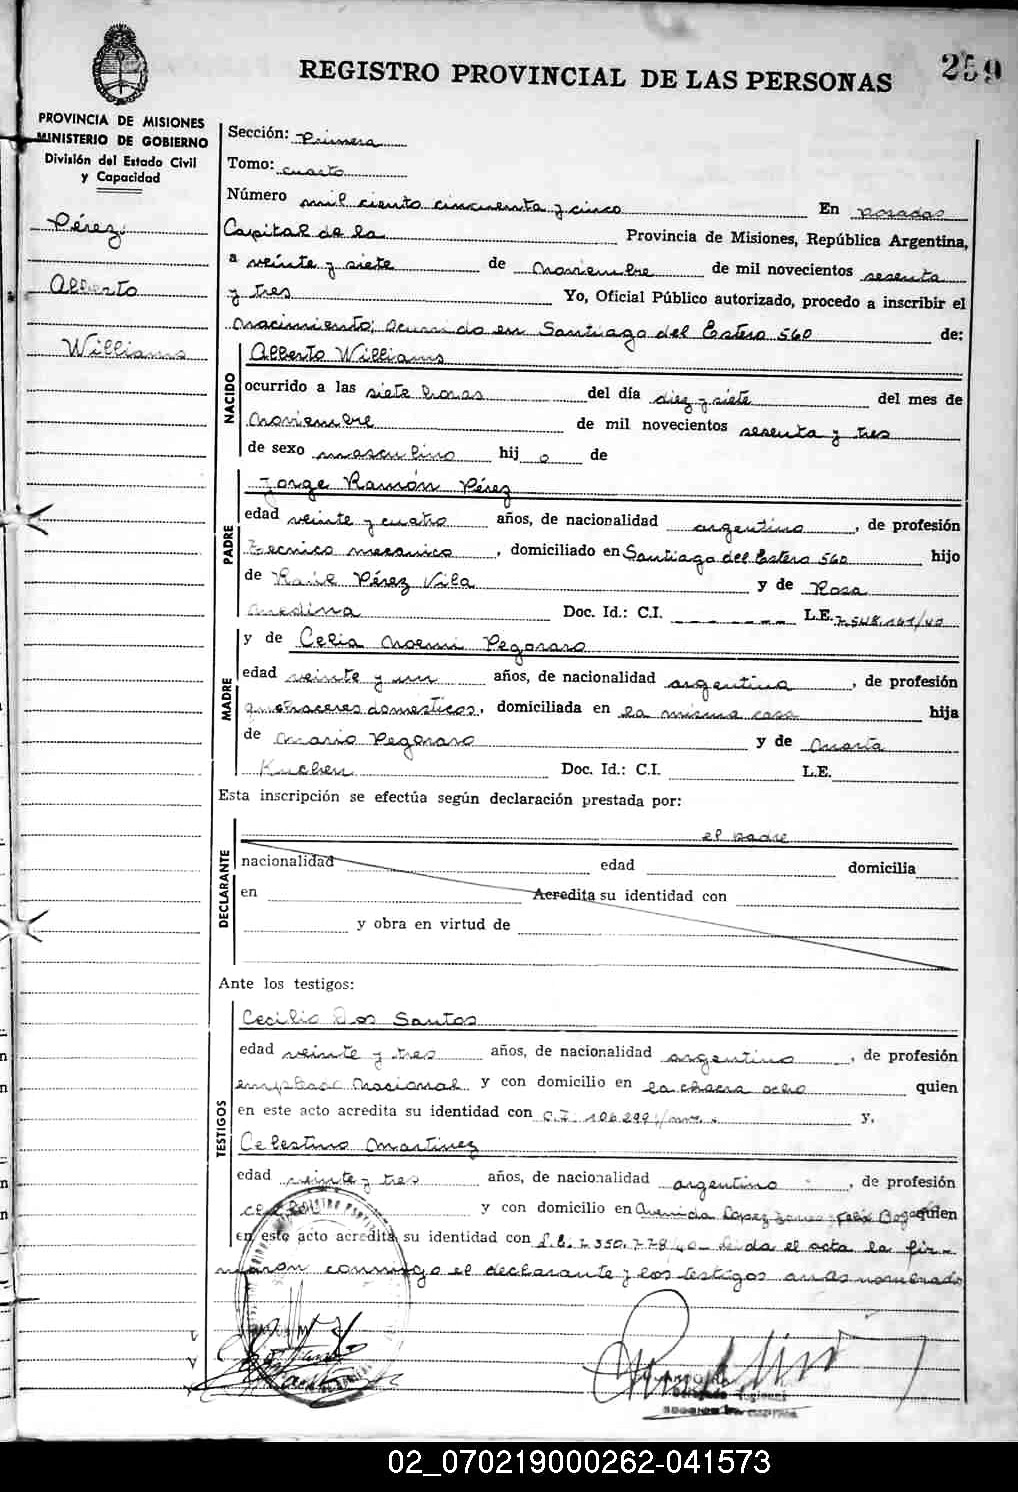 259
REGISTRO PROVINCIAL DE LAS PERSONAS
PROVINCIA DE MISIONES
MINISTERIO DE GOBIERNO
División del Estado Civil
y Capacidad
Pérez
Alberto
Williams
Sección: Primera
Tomo: cuarto
Número mil ciento cincuenta y cinco En Posadas
Capital de la Provincia de Misiones, República Argentina,
a veinte y siete de Noviembre de mil novecientos sesenta
y tres Yo, Oficial Público autorizado, procedo a inscribir el
nacimiento; ocurrido en Santiago del Estero 560 de:
NACIDO
Alberto Williams
ocurrido a las siete horas del día diez y siete del mes de
Noviembre de mil novecientos sesenta y tres
de sexo masculino hij o de
PADRE
Jorge Ramón Pérez
edad veinte y cuatro años, de nacionalidad argentino, de profesión
tecnico mecanico, domiciliado en Santiago del Estero 560 hijo
de Raúl Pérez Vila y de Rosa
Medina Doc. Id.: C.I. L.E. 7.548.141/40
MADRE
y de Celia Noemi Pegoraro
edad veinte y un años, de nacionalidad argentina, de profesión
quehaceres domesticos, domiciliada en la misma casa hija
de Mario Pegoraro y de Marta
Kuchen Doc. Id.: C.I. L.E.
Esta inscripción se efectúa según declaración prestada por:
DECLARANTE
el padre
nacionalidad edad domicilia
en Acredita su identidad con
y obra en virtud de
Ante los testigos:
TESTIGOS
Cecilio Dos Santos
edad veinte y tres años, de nacionalidad argentino, de profesión
empleado Nacional y con domicilio en la chacra ocho quien
en este acto acredita su identidad con C.I. 106.299 y,
Celestino Martinez
edad veinte y tres años, de nacionalidad argentino, de profesión
y con domicilio en Avenida Lopez Torres y Felix Bogado quien
en este acto acredita su identidad con L.E. 7.350.778/40 Leida el acta la fir-
maron conmigo el declarante y los testigos antes nombrado
02_070219000262-041573